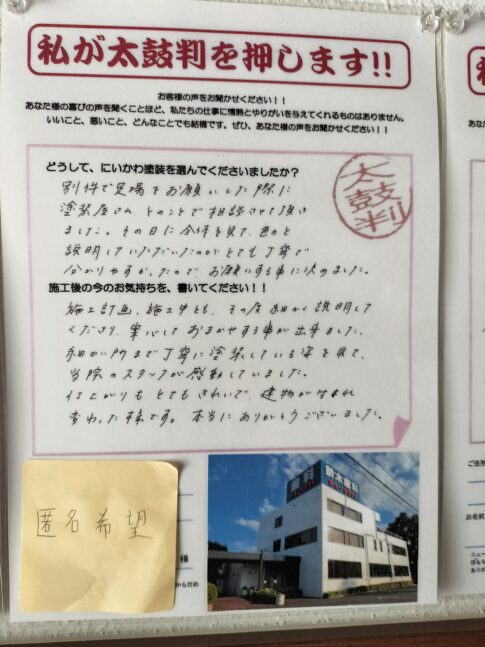 私が太鼓判を押します!!
お客様の声をお聞かせください！！
あなた様の喜びの声を聞くことほど、私たちの仕事に情熱とやりがいを与えてくれるものはありません。
いいこと、悪いこと、どんなことでも結構です。ぜひ、あなた様の声をお聞かせください！！
どうして、にいかわ塗装を選んでくださいましたか？
太鼓判
別件で足場をお願いした際に
塗装屋さんとのことで相談させて頂き
ました。その日に全体を見て、色々と
説明していただいたのがとても丁寧で
分かりやすかったので お願いする事に決めました。
施工後の今のお気持ちを、書いてください！！
施工計画、施工中とも、その度細かく説明して
くださり、安心しておまかせする事が出来ました。
細かい所まで丁寧に塗装している姿を見て、
当院のスタッフが感動していました。
仕上がりもとてもきれいで、建物が生まれ
変わった様です。本当にありがとうございました。
匿名希望
様